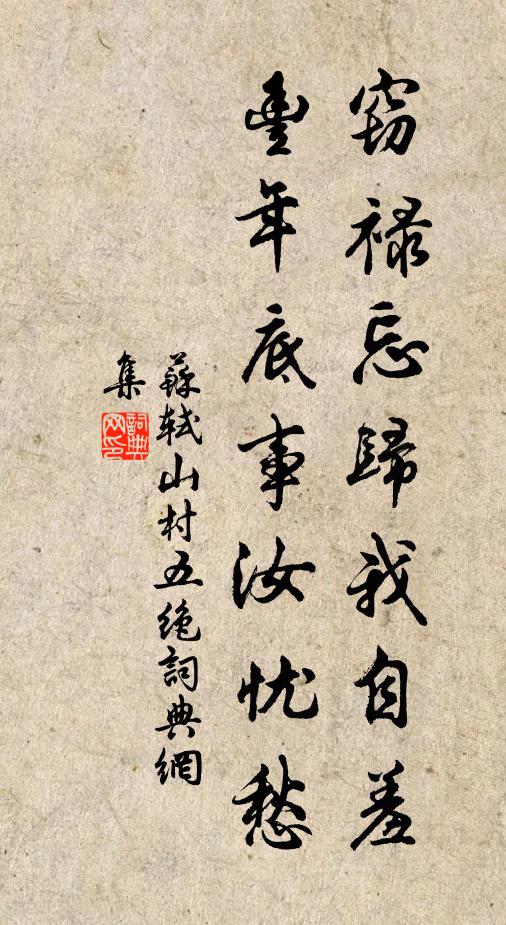 窃禄忘歸我自羞
豐年底事汝忧愁
蘇軾山村五绝詞典網
集
詞典网印